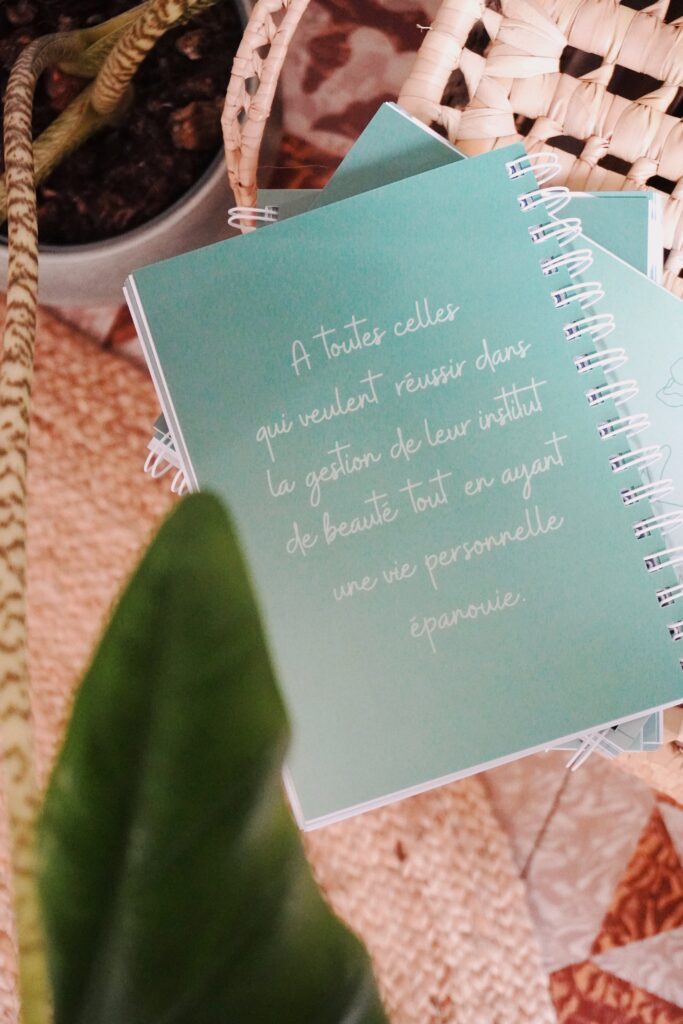 A toutes celles
qui veulent réussir dans
la gestion de leur institut
de beauté tout en ayant
une vie personnelle
épanouie.